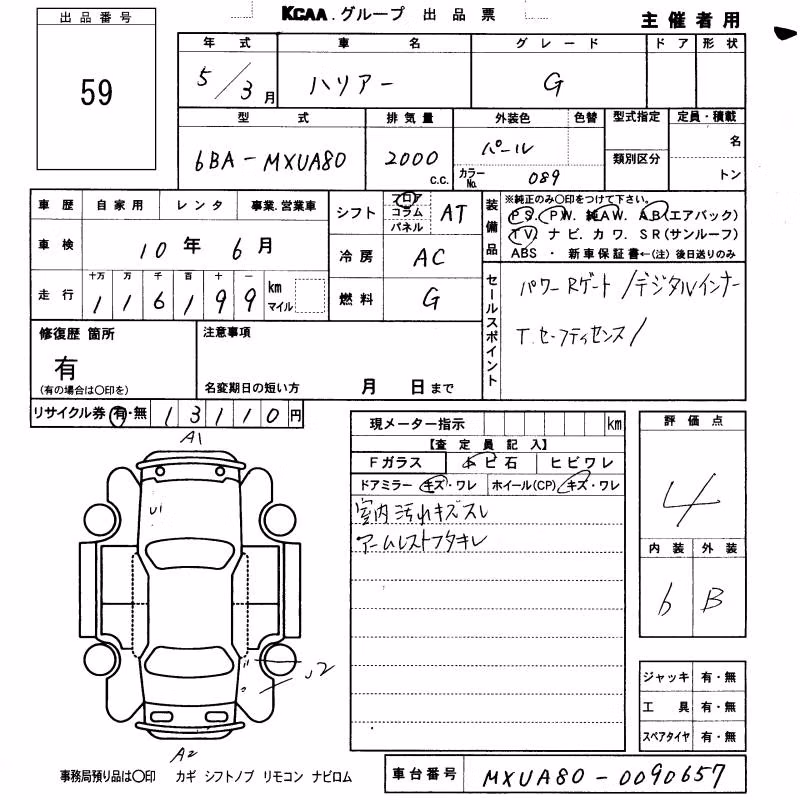 KCAA.グループ 出品票
主催者用
出品番号
59
年式 車名 グレード ドア 形状
5/3月 ハリアー G
型式 排気量 外装色 色替 型式指定 定員・積載
6BA-MXUA80 2000 c.c. パール 名
カラーNo. 089 類別区分 トン
車歴 自家用 レンタ 事業.営業車
シフト フロア コラム パネル AT
装備品 ※純正のみ〇印をつけて下さい。
PS. PW. 純AW. AB(エアバック)
TV. ナビ. カワ. SR(サンルーフ)
ABS ・ 新車保証書←(注)後日送りのみ
車検 10年 6月
冷房 AC
走行 十万 万 千 百 十 一
1 1 6 1 9 9 km マイル
燃料 G
セールスポイント
パワーRゲート/デジタルインナー
T.セーフティセンス/
修復歴 箇所
有
(有の場合は〇印を)
注意事項
名変期日の短い方 月 日まで
リサイクル券 有・無 13110円
現メーター指示 km
【査定員記入】
Fガラス トビ石 ヒビワレ
ドアミラー キズ・ワレ ホイール(CP) キズ・ワレ
室内汚れキズスレ
アームレストフタキレ
評価点
4
内装 外装
6 B
A1
U1
U2
A2
ジャッキ 有・無
工具 有・無
スペアタイヤ 有・無
事務局預り品は〇印 カギ シフトノブ リモコン ナビロム
車台番号 MXUA80-0090657